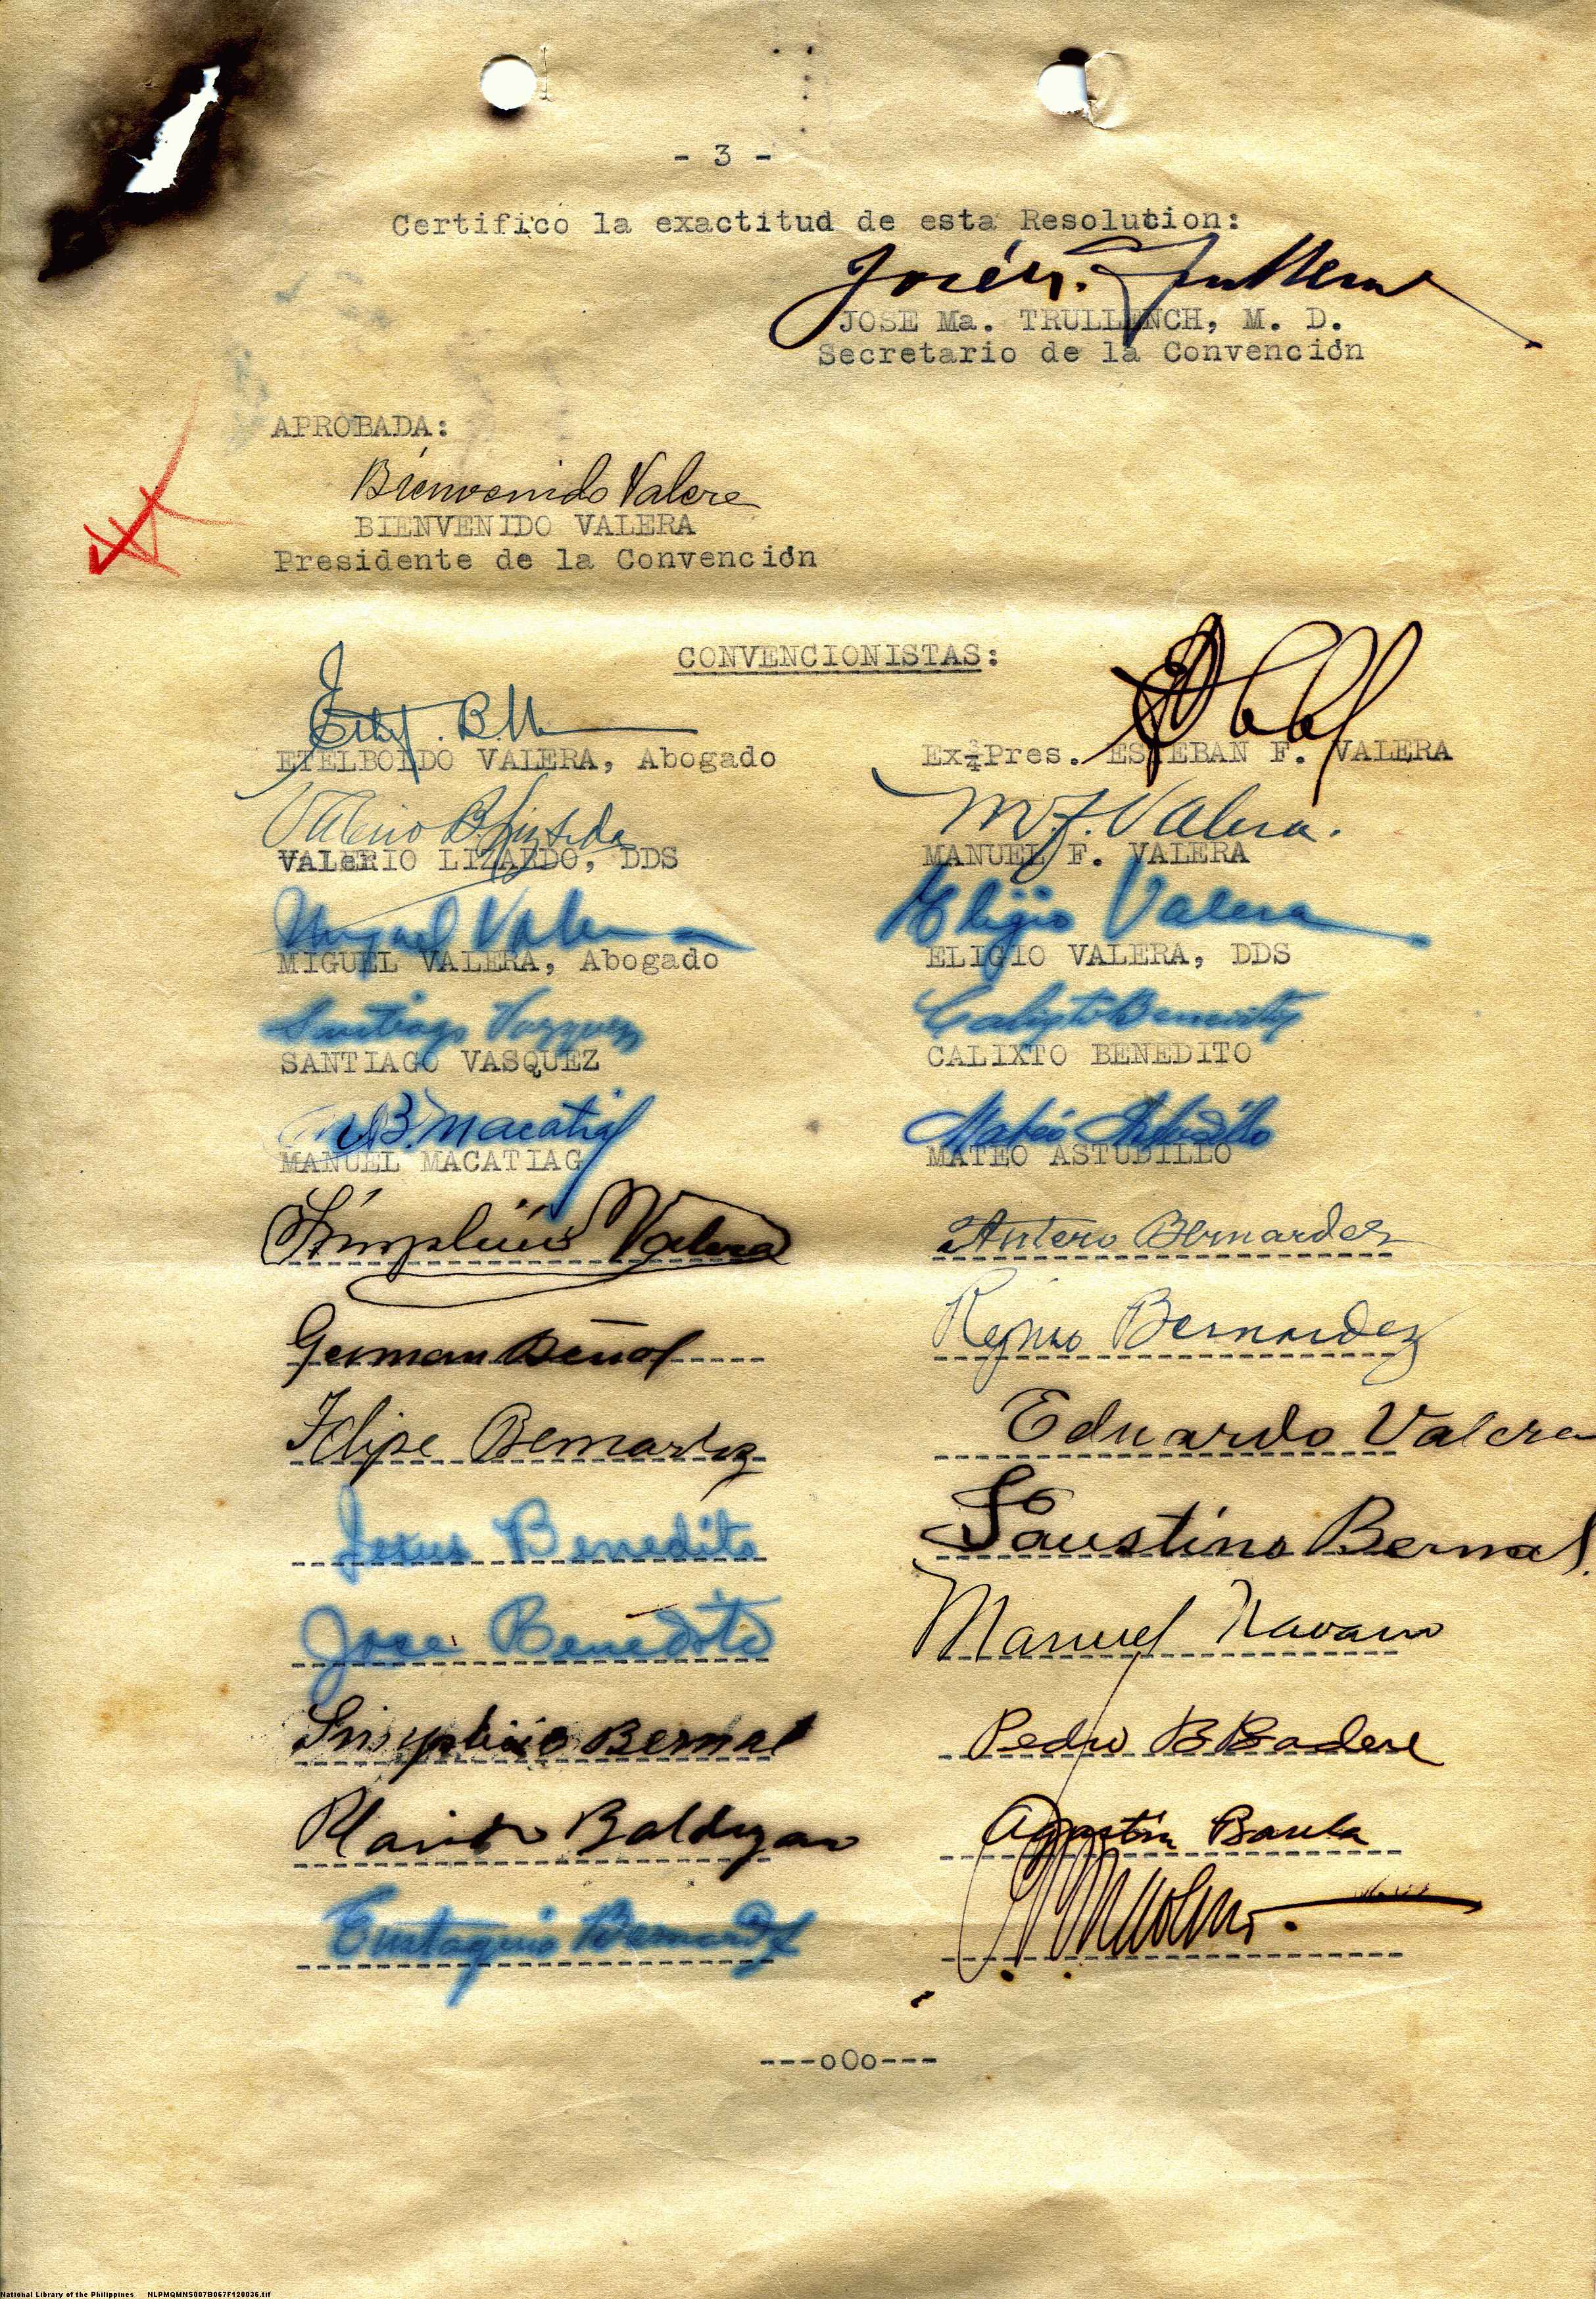 - 3 -
Certifico la exactitud de esta Resolucion:
JOSE Ma. TRULLENCH, M. D.
Secretario de la Convención
APROBADA:
Bienvenido Valera
BIENVENIDO VALERA
Presidente de la Convención
CONVENCIONISTAS:
ETELBOLDO VALERA, Abogado
Ex-Pres. ESTEBAN F. VALERA
M. F. Valera.
VALeRIO LIZARDO, DDS
MANUEL F. VALERA
Miguel Valera
Eligio Valera
MIGUEL VALERA, Abogado
ELIGIO VALERA, DDS
Santiago Vazquez
Calixto Benedito
SANTIAGO VASQUEZ
CALIXTO BENEDITO
M B. Macatiag
Mateo Astudillo
MANUEL MACATIAG
MATEO ASTUDILLO
Simplicio Valera
Antero Bernardez
German
Bernardez
Felipe Bernardez
Eduardo Valera
Jesus Benedito
Faustino Bernal.
Jose Benedito
Manuel Navarro
Simplicio Bernal
Pedro B
Agustin
Eustaquio Bernardez
---oOo---
National Library of the Philippines NLPMQMNS007B067F120036.tif